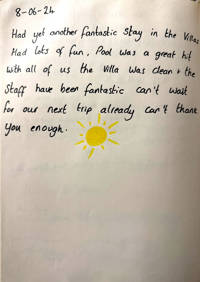 8-06-24
Had yet another fantastic Stay in the Villas
Had lots of fun, Pool was a great hit
with all of us the Villa was clean + the
Staff have been fantastic can't wait
for our next trip already can't thank
you enough.